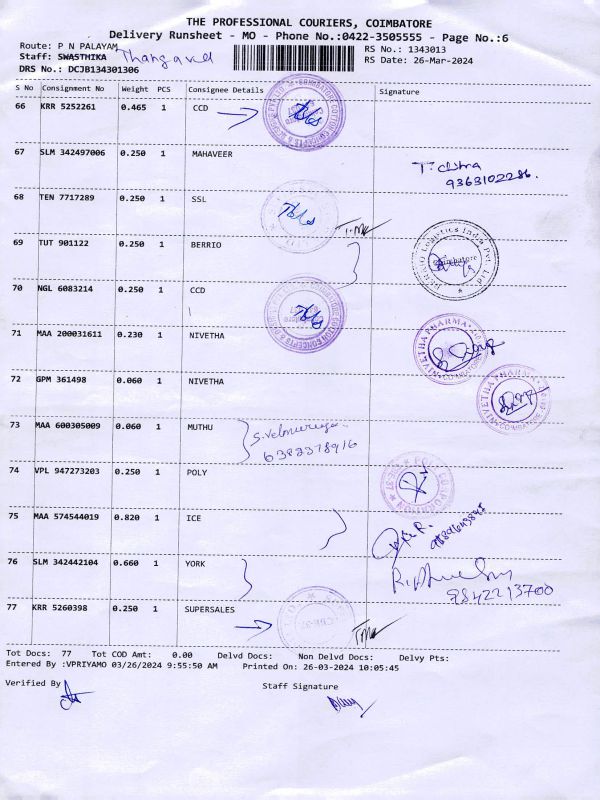 THE PROFESSIONAL COURIERS, COIMBATORE
Delivery Runsheet - MO - Phone No.:0422-3505555 - Page No.:6
Route: P N PALAYAM RS No.: 1343013
Staff: SWASTHIKA Thangavel RS Date: 26-Mar-2024
DRS No.: DCJB134301306
S No Consignment No Weight PCS Consignee Details Signature
66 KRR 5252261 0.465 1 CCD
67 SLM 342497006 0.250 1 MAHAVEER
9363102286.
68 TEN 7717289 0.250 1 SSL
69 TUT 901122 0.250 1 BERRIO
70 NGL 6083214 0.250 1 CCD
71 MAA 200031611 0.230 1 NIVETHA
NIVETHA PHARMA
72 GPM 361498 0.060 1 NIVETHA
NIVETHA PHARMA
73 MAA 600305009 0.060 1 MUTHU
S. Velmurugan
74 VPL 947273203 0.250 1 POLY
75 MAA 574544019 0.820 1 ICE
76 SLM 342442104 0.660 1 YORK
9842213700
77 KRR 5260398 0.250 1 SUPERSALES
Tot Docs: 77 Tot COD Amt: 0.00 Delvd Docs: Non Delvd Docs: Delvy Pts:
Entered By :VPRIYAMO 03/26/2024 9:55:50 AM Printed On: 26-03-2024 10:05:45
Verified By Staff Signature